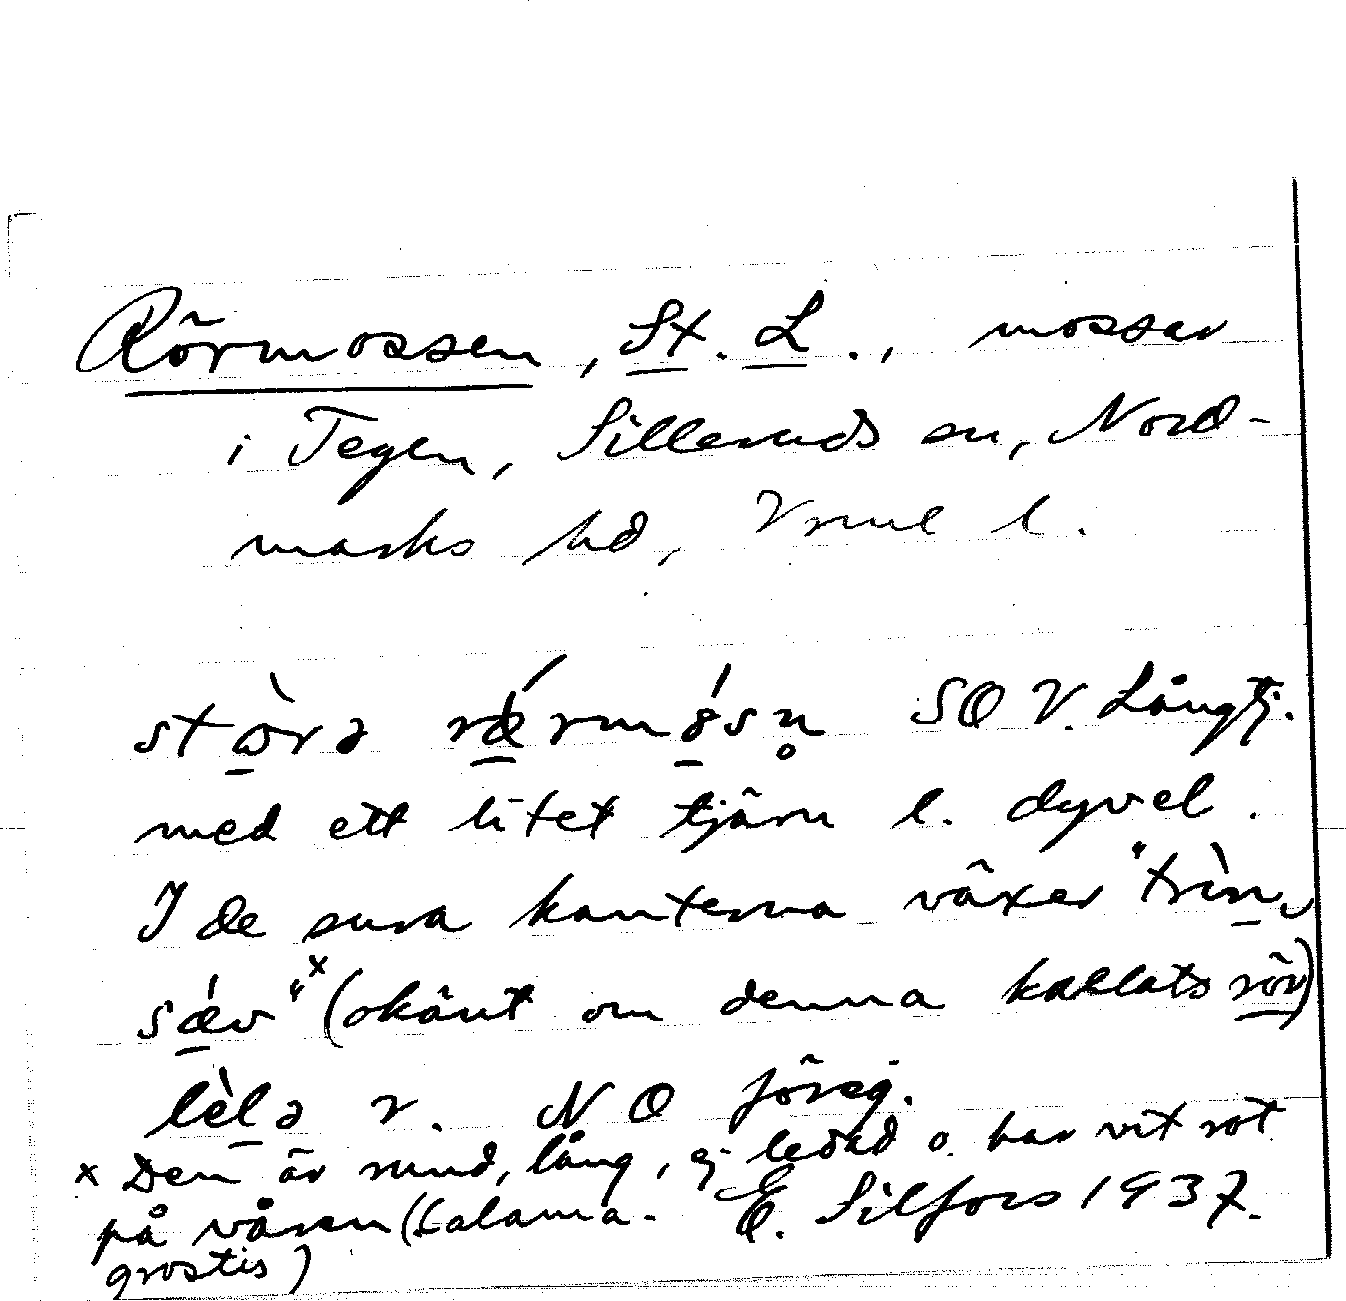 Rörmossen, St. L., mossar
i Tegen, Silleruds sn, Nord-
marks hd, Vrml l.
stòrə rǽrmósn̥ SO V. Långtj.
med ett litet tjärn l. dyvel.
I de sura kanterna växer "trìn,
sǽv"x (okänt om denna kallats rör)
lèlə r. NO föreg.
x Den är rund, lång, ej ledad o. har vit rot
på våren (Calama-
grostis) E. Silfors 1937.